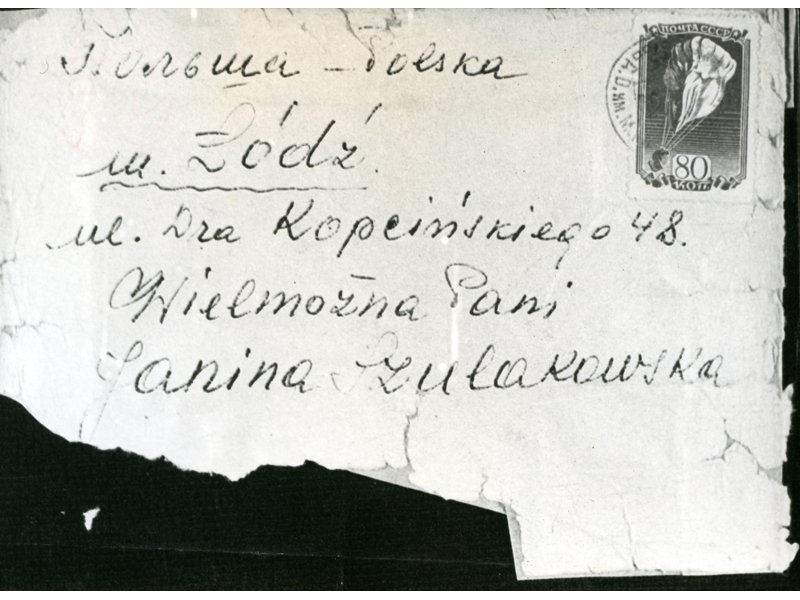 Польша – Polska
м. Łódź.
ul. Dra Kopcińskiego 48.
Wielmożna Pani
Janina Szulakowska
ПОЧТА СССР
80
КОП.